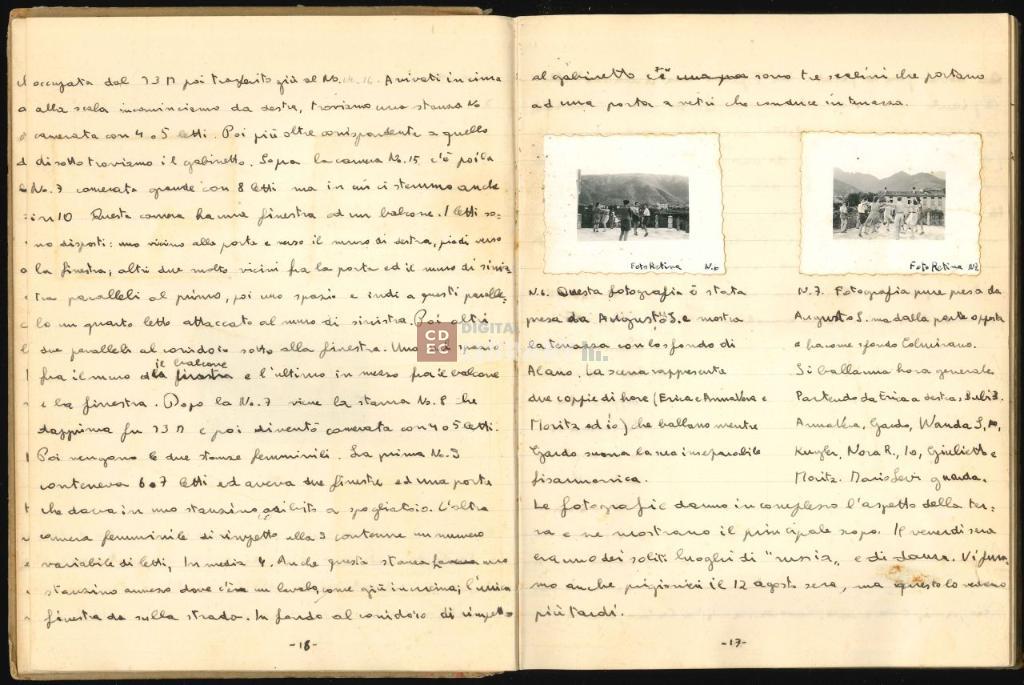 occupata dal 73 M poi trasferito giù al No. 14-16. Arrivati in cima
alla scala incominciamo da destra, troviamo una stanza No
camerata con 4 o 5 letti. Poi più oltre corrispondente a quello
di sotto troviamo il gabinetto. Sopra la camera No. 15 c'è poi la
No. 7 camerata grande con 8 letti ma in cui ci stemmo anche
in 10 Questa camera ha una finestra ed un balcone. I letti so=
no disposti: uno vicino alla porta e verso il muro di destra, piedi verso
la finestra; altri due molto vicini fra la porta ed il muro di sinis
tra paralleli al primo, poi uno spazio e indi a questi paralle=
lo un quarto letto attaccato al muro di sinistra. Poi altri
due paralleli al corridoio sotto alla finestra. Uno spazio
il balcone
fra il muro la finestra e l'ultimo in mezzo fra il balcone
e la finestra. Dopo la No. 7 viene la stanza No. 8 che
dapprima fu 73 M e poi diventò camerata con 4 o 5 letti.
Poi vengono le due stanze femminili. La prima No. 3
conteneva 6 o 7 letti ed aveva due finestre ed una porta
che dava in uno stanzino adibito a spogliatoio. L'altra
camera femminile di rimpetto alla 3 contenne un numero
variabile di letti, In media 4. Anche questa stanza uno
stanzino annesso dove c'era un lavabo, come giù in cucina; l'unica
finestra da sulla strada. In fondo al corridoio di rimpetto
-18-
al gabinetto c'è una sono tre scalini che portano
ad una porta a vetri che conduce in terrazza.
Foto Retina N.6
Foto Retina N7
N.6. Questa fotografia è stata
presa da Augusto S. e mostra
la terrazza con lo sfondo di
Alano. La scena rappresenta
due coppie di hore (Erica e Annalora e
Moritz ed io) che ballano mentre
Gardo suona la sua inseparabile
fisarmonica.
N.7. Fotografia pure presa da
Augusto S. ma dalla parte opposta
e ha come sfondo Colmirano.
Si balla una hora generale
Partendo da Erica a destra,
Gardo, Wanda S,
Kugler, Nora R., Io, Giulietto e
Moritz. Maris Levi guarda.
Le fotografie danno in complesso l'aspetto della ter=
ra e ne mostrano il principale scopo. Il venerdì sera
erano dei soliti luoghi di "russia" e di danza. Vi fum=
mo anche prigionieri il 12 agosto sera, ma questo lo vedremo
più tardi.
-17-
CDEC
DIGITAL
LIBRARY